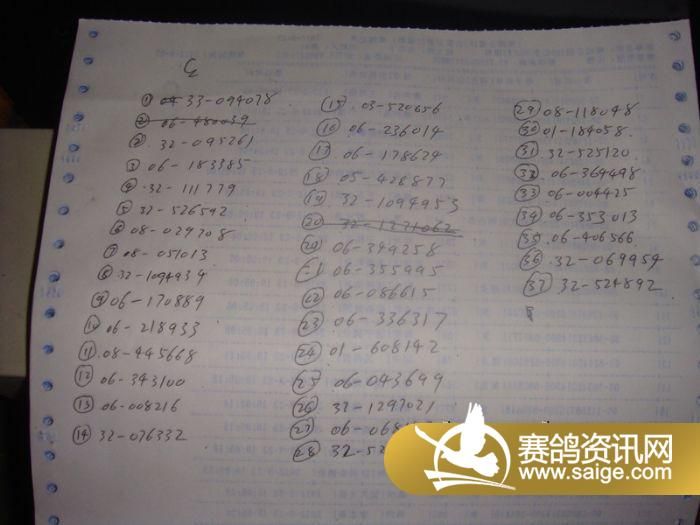 ① 33-094078
② 06-480039
② 32-095261
③ 06-183385
④ 32-111779
⑤ 32-526592
⑥ 08-029708
⑦ 08-051013
⑧ 32-1094939
⑨ 06-170889
⑩ 06-218933
⑪ 08-445668
⑫ 06-343100
⑬ 06-008216
⑭ 32-076332
⑮ 03-520656
⑯ 06-236014
⑰ 06-178624
⑱ 05-428877
⑲ 32-1094953
⑳ 32-1271062
⑳ 06-349258
㉑ 06-355995
㉒ 06-086615
㉓ 06-336317
㉔ 01-608142
㉕ 06-043699
㉖ 32-1297021
㉗ 06-068
㉘ 32-52
㉙ 08-118048
㉚ 01-184058
㉛ 32-525120
㉜ 06-369498
㉝ 06-004425
㉞ 06-353013
㉟ 06-406566
㊱ 32-069954
㊲ 32-524892
赛鸽资讯网
www.saige.com